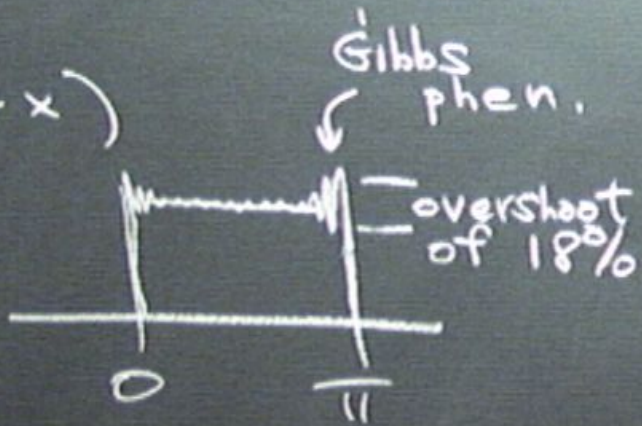 Gibbs
phen.
x)
overshoot
of 18%
0 π